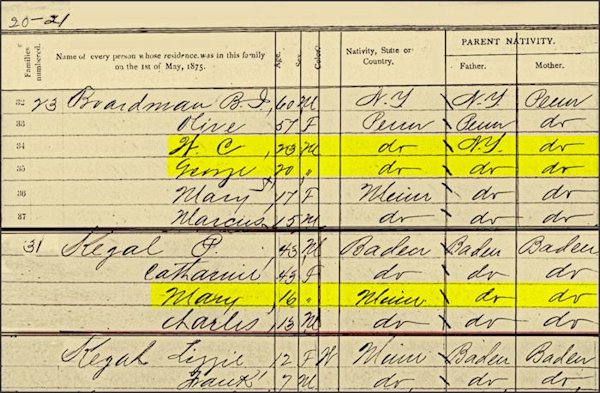 20-21
Families numbered. Name of every person whose residence was in this family on the 1st of May, 1875. Age. Sex. Color. Nativity, State or Country. PARENT NATIVITY. Father. Mother.
32 23 Boardman B. I, 60 M N.Y N.Y Penn
33 Olive 57 F Penn Penn do
34 W. C, 23 M do N.Y. do
35 George 20 " do do do
36 Mary 17 F Minn do do
37 Marcus, 15 M do do do
31 Kegal P. 43 M Baden Baden Baden
Catharine 43 F do do do
Mary, 16 " Minn do do
Charles, 13 M do do do
Kegal Lizzie 12 F W Minn Baden Baden
Frank 7 M do do do